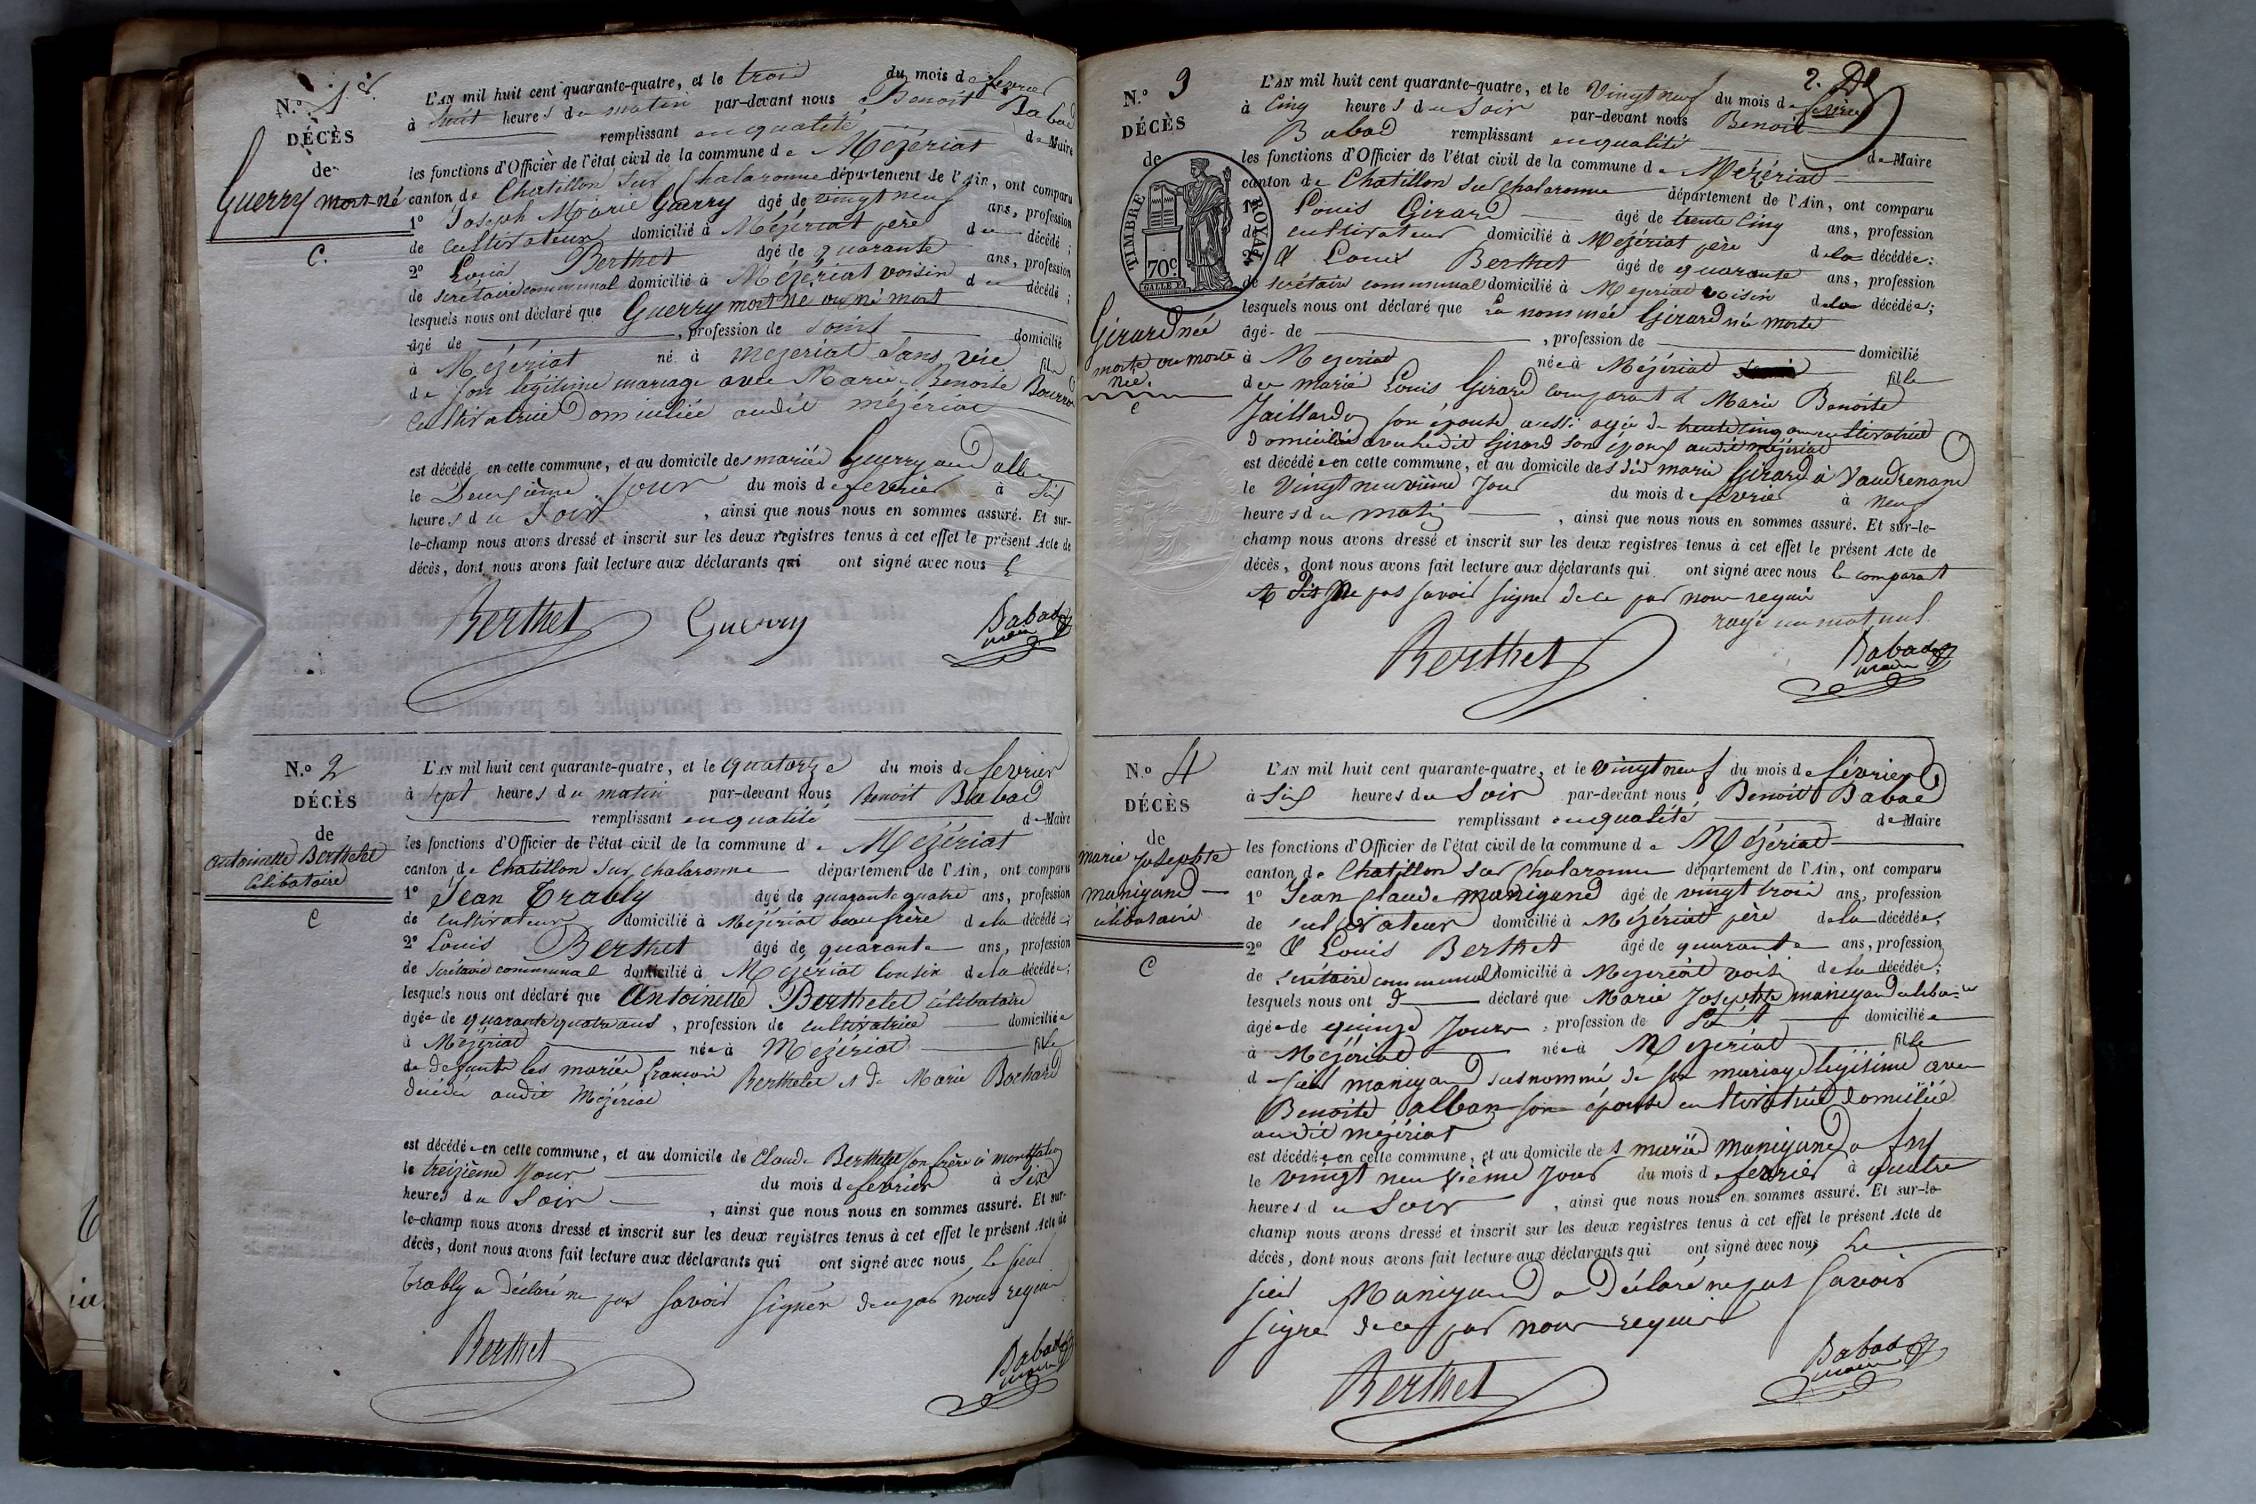 N.º 1er
DÉCÈS
de
Guerry mort-né
C.
L'AN mil huit cent quarante-quatre, et le trois du mois de fevrier
à huit heures du matin par-devant nous Benoit Babad
remplissant en qualité de Maire
les fonctions d'Officier de l'état civil de la commune de Mézériat
canton de Chatillon sur Chalaronne département de l'Ain, ont comparu
1º Joseph Marie Guerry âgé de vingt neuf ans, profession
de cultivateur domicilié à Mézériat père du décédé ;
2º Louis Berthet âgé de quarante ans, profession
de secrétaire communal domicilié à Mézériat voisin du décédé ;
lesquels nous ont déclaré que Guerry mort né ou né mort
âgé de , profession de domicilié
à Mézériat né à mezeriat sans vie fils
de son légitime mariage avec Marie Benoite
Cultivatrice Domiciliée audit mézériat
est décédé en cette commune, et au domicile des mariés Guerry
le Deuxième Jour du mois de fevrier à Six
heures du Soir , ainsi que nous nous en sommes assuré. Et sur-
le-champ nous avons dressé et inscrit sur les deux registres tenus à cet effet le présent Acte de
décès, dont nous avons fait lecture aux déclarants qui ont signé avec nous
Berthet Guerry Babad
maire
N.º 2
DÉCÈS
de
antoinette Berthelet
Célibataire
C
L'AN mil huit cent quarante-quatre, et le quatorze du mois de fevrier
à sept heures du matin par-devant nous Benoit Babad
remplissant en qualité de Maire
les fonctions d'Officier de l'état civil de la commune de Mézériat
canton de Chatillon sur Chalaronne département de l'Ain, ont comparu
1º Jean Trably âgé de quarante quatre ans, profession
de cultivateur domicilié à Mézériat beau frère de la décédée ;
2º Louis Berthet âgé de quarante ans, profession
de Secrétaire communal domicilié à Mézériat Cousin de la décédée ;
lesquels nous ont déclaré que Antoinette Berthelet célibataire
âgée de quarante quatre ans , profession de cultivatrice domiciliée
à Mézériat née à Mézériat fille
de defunts les mariés françois Berthelet et de Marie Bochard
décédés audit Mézériat
est décédée en cette commune, et au domicile de Claude Berthelet son frère à
le treizième Jour du mois de fevrier à Six
heures du Soir , ainsi que nous nous en sommes assuré. Et sur-
le-champ nous avons dressé et inscrit sur les deux registres tenus à cet effet le présent Acte de
décès, dont nous avons fait lecture aux déclarants qui ont signé avec nous le sieur
Trably a Déclaré ne pas savoir signer de ce par nous requis
Berthet Babad
maire
2.
N.º 3
DÉCÈS
de
TIMBRE ROYAL
70 c
Girard née
morte ou morte
née.
C
L'AN mil huit cent quarante-quatre, et le Vingt neuf du mois de fevrier
à Cinq heures du Soir par-devant nous Benoit
Babad remplissant en qualité de Maire
les fonctions d'Officier de l'état civil de la commune de Mézériat
canton de Chatillon sur chalaronne département de l'Ain, ont comparu
1º Louis Girard âgé de trente Cinq ans, profession
de cultivateur domicilié à Mézériat père de la décédée ;
2º & Louis Berthet âgé de quarante ans, profession
de secrétaire communal domicilié à Mezeriat voisin de la décédée ;
lesquels nous ont déclaré que La nommée Girard née morte
âgé de , profession de domicilié
à Mezeriat née à Mézériat fille
des mariés Louis Girard comparant & Marie Benoite
Jaillard son épouse aussi agée de trente cinq ans cultivatrice
domiciliée avec ledit Girard son époux audit mézériat
est décédée en cette commune, et au domicile des dits mariés Girard à Vaudrenand
le Vingt neuvième Jour du mois de fevrier à neuf
heures du matin , ainsi que nous nous en sommes assuré. Et sur-le-
champ nous avons dressé et inscrit sur les deux registres tenus à cet effet le présent Acte de
décès, dont nous avons fait lecture aux déclarants qui ont signé avec nous le comparant
a dit Ne pas savoir signer de ce par nous requis
rayé un mot nul.
Berthet Babad
maire
N.º 4
DÉCÈS
de
marie Josephte
manigand
célibataire
C
L'AN mil huit cent quarante-quatre, et le vingt neuf du mois de février
à Six heures du Soir par-devant nous Benoit Babad
remplissant en qualité de Maire
les fonctions d'Officier de l'état civil de la commune de Mézériat
canton de Chatillon sur Chalaronne département de l'Ain, ont comparu
1º Jean Claude manigand âgé de vingt trois ans, profession
de cultivateur domicilié à Mézériat père de la décédée ;
2º & Louis Berthet âgé de quarante ans, profession
de secrétaire communal domicilié à Mezeriat voisin de la décédée ;
lesquels nous ont déclaré que Marie Josephte manigand célibataire
âgée de quinze Jours , profession de domiciliée
à Mézériat née à Mezériat fille
de sieur manigand susnommé de son mariage légitime avec
Benoite alban son épouse cultivatrice domiciliée
audit mézériat
est décédée en cette commune, et au domicile des mariés manigand a
le vingt neuvième Jour du mois de février à quatre
heures du Soir , ainsi que nous nous en sommes assuré. Et sur-le-
champ nous avons dressé et inscrit sur les deux registres tenus à cet effet le présent Acte de
décès, dont nous avons fait lecture aux déclarants qui ont signé avec nous Le
sieur Manigand a Déclaré ne pas Savoir
signer de ce par nous requis
Berthet Babad
maire